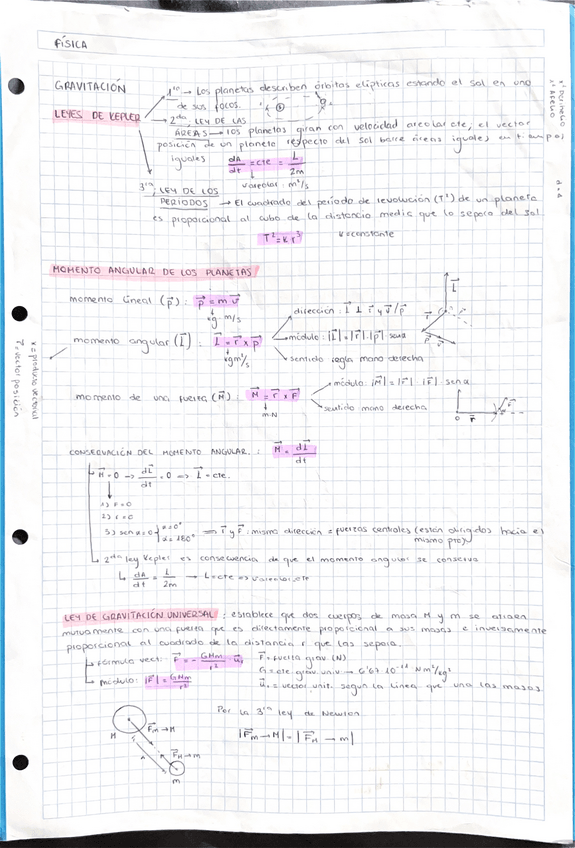 FÍSICA
GRAVITACIÓN
LEYES DE KEPLER
1ra → Los planetas describen órbitas elípticas estando el sol en uno
de sus focos.
2da, LEY DE LAS
ÁREAS → los planetas giran con velocidad areolar cte, el vector
posición de un planeta respecto del sol barre áreas iguales en tiempos
iguales
dA/dt = cte = L/2m
v areolar: m²/s
3ra, LEY DE LOS
PERIODOS → El cuadrado del periodo de revolución (T²) de un planeta
es proporcional al cubo de la distancia media que lo separa del sol
T² = k r³ k = constante
MOMENTO ANGULAR DE LOS PLANETAS
momento lineal (p⃗) : p⃗ = m v⃗
kg m/s
momento angular (L⃗) : L⃗ = r⃗ x p⃗
kg m²/s
dirección: L⃗ ⊥ r⃗ y v⃗/p⃗
módulo: |L⃗| = |r⃗|·|p⃗| senα
sentido regla mano derecha
L⃗
r⃗
p⃗
x = producto vectorial
r⃗ = vector posición
momento de una fuerza (M⃗) : M⃗ = r⃗ x F⃗
m·N
módulo: |M⃗| = |r⃗| · |F⃗| · sen α
sentido mano derecha
O r⃗ F⃗
CONSERVACIÓN DEL MOMENTO ANGULAR : M⃗ = dL⃗/dt
M⃗ = 0 → dL⃗/dt = 0 => L⃗ = cte.
1) F = 0
2) r = 0
3) sen α = 0 { α = 0° α = 180° => r⃗ y F⃗: misma dirección = fuerzas centrales (están dirigidos hacia el
mismo pto)
2da ley Kepler es consecuencia de que el momento angular se conserva
dA/dt = L/2m → L = cte => v areolar cte
LEY DE GRAVITACIÓN UNIVERSAL : establece que dos cuerpos de masa M y m se atraen
mutuamente con una fuerza que es directamente proporcional a sus masas e inversamente
proporcional al cuadrado de la distancia r que las separa.
fórmula vect: F⃗ = - GMm/r² · u⃗r
F⃗ = fuerza grav. (N)
módulo: |F⃗| = GMm/r²
G = cte grav. univ → 6'67·10⁻¹¹ N m²/kg²
u⃗r = vector unit. según la línea que una las masas.
M
F⃗m→M
F⃗M→m
m
Por la 3ra ley de Newton
|F⃗m→M| = |F⃗M→m|